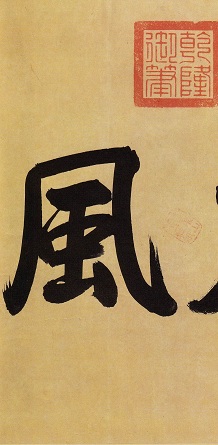 乾隆御筆
風